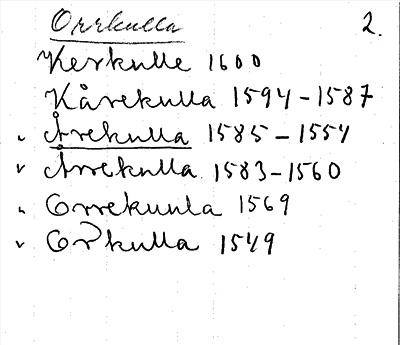 Orrkulla 2.
Kerkulle 1600
Kårekulla 1594-1587
" Årekulla 1585-1554
v Årrekulla 1583-1560
" Orrekunla 1569
v Orkulla 1549